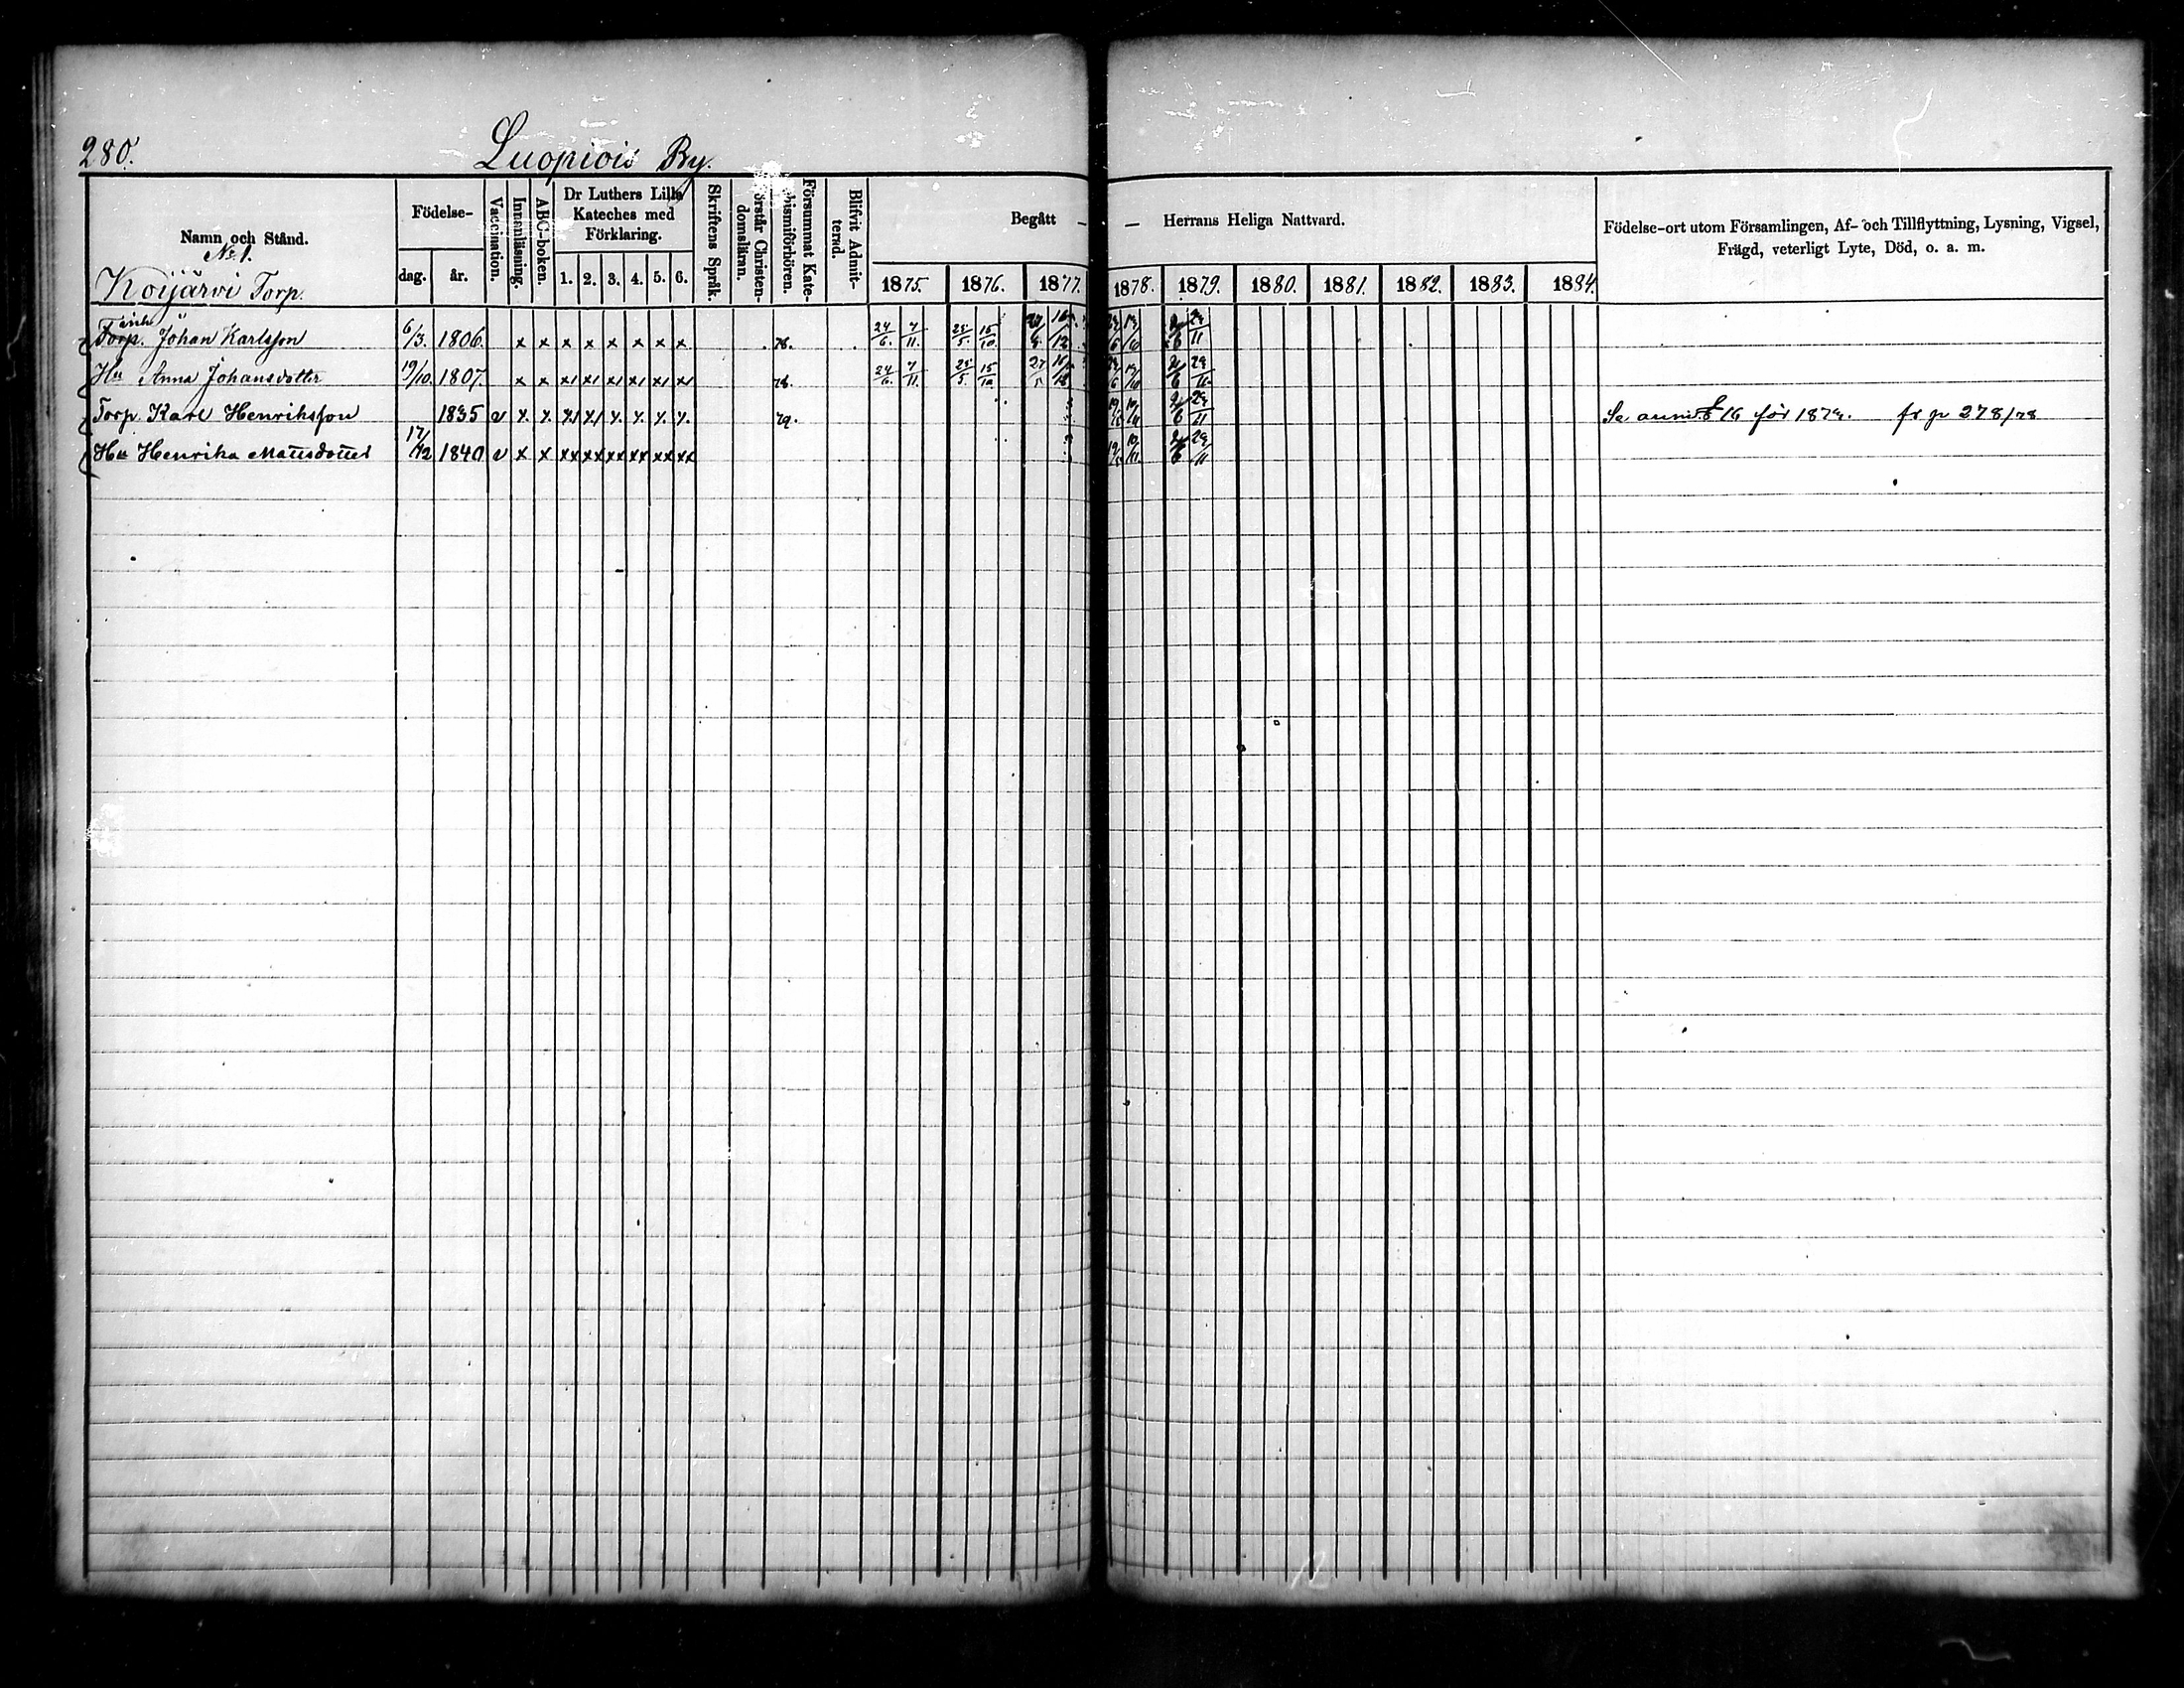 280.
Luopiois By.
Namn och Stånd.
No 1.
Koijärvi Torp.
Födelse-
dag. år.
Vaccination.
Innanläsning.
ABC-boken.
Dr Luthers Lilla Kateches med Förklaring.
1. 2. 3. 4. 5. 6.
Skriftens Språk.
örstår Christen-domsläran.
Försummat Kate-
ismiförhören.
Blifvit Admit-terad.
Begått — — Herrans Heliga Nattvard.
1875. 1876. 1877. 1878. 1879. 1880. 1881. 1882. 1883. 1884.
Födelse-ort utom Församlingen, Af- och Tillflyttning, Lysning, Vigsel,
Frägd, veterligt Lyte, Död, o. a. m.
Torp. Johan Karlsson 6/3. 1806. x x x x x x x x 78. 24/6. 7/11. 25/5. 15/10. 2/6 29/11
Hu Anna Johansdotter 19/10. 1807. x x x x x x x x 78. 24/6. 7/11. 25/5. 15/10 2/6 29/11
Torp. Karl Henriksson 1835 v x x x x x x x x 79. 2/6 29/11 fr p 278/78
Hu Henrika Mattsdotter 17/12 1840 v x x xx xx xx xx xx xx 2/6 29/11